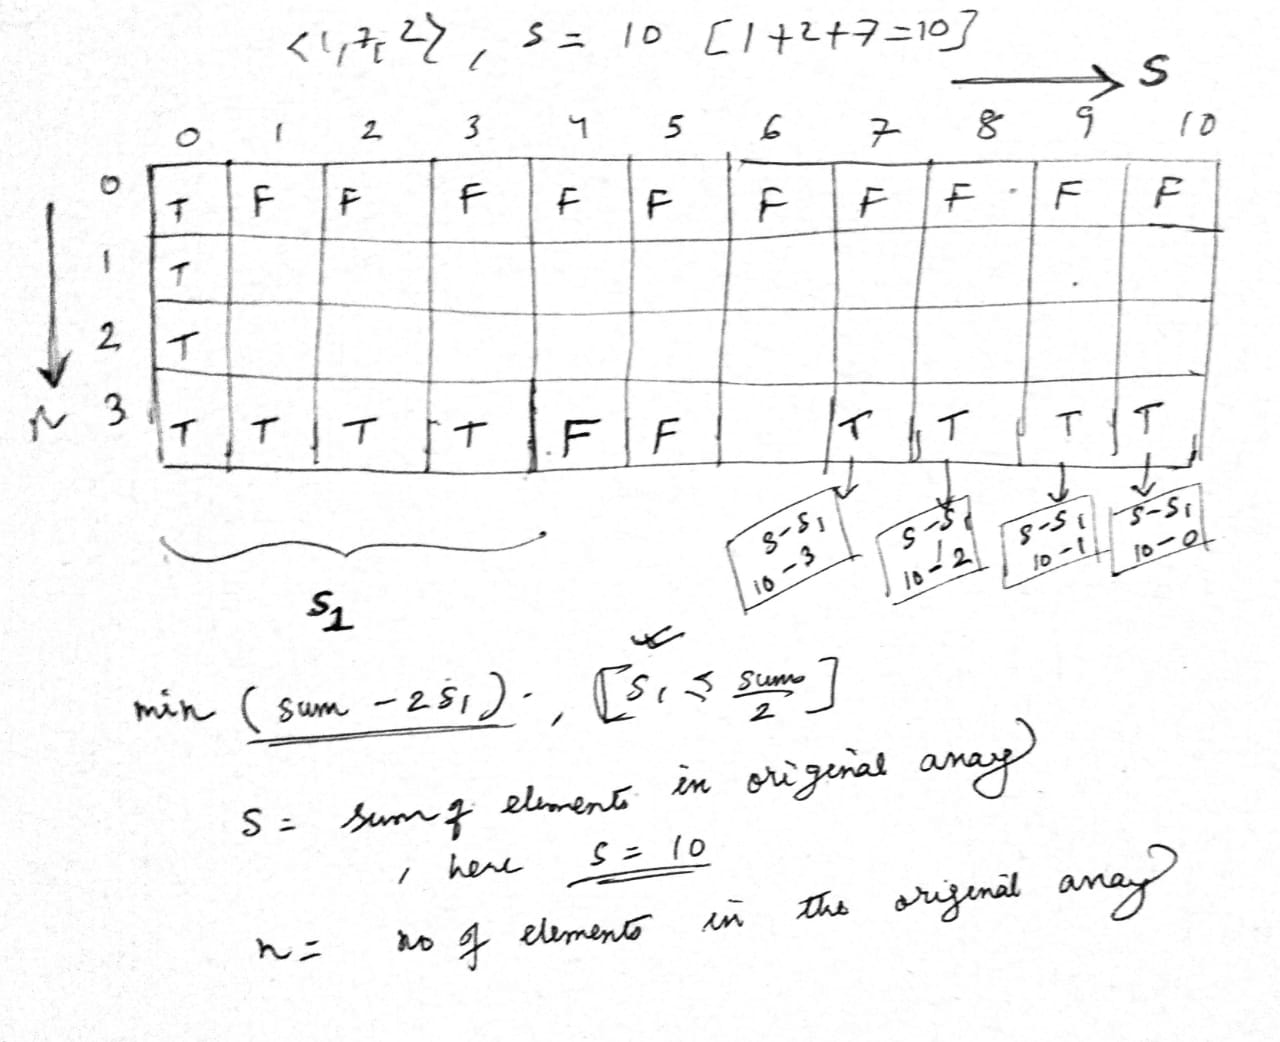 <1,7,2>, S = 10 [1+2+7=10]
S
0 1 2 3 4 5 6 7 8 9 10
0 T F F F F F F F F F F
1 T
2 T
N 3 T T T T F F T T T T
S-S1 S-S1 S-S1 S-S1
10-3 10-2 10-1 10-0
S1
min (sum - 2S1). , [S1 ≤ sum/2]
S = sum of elements in original array
, here S = 10
n = no of elements in the original array